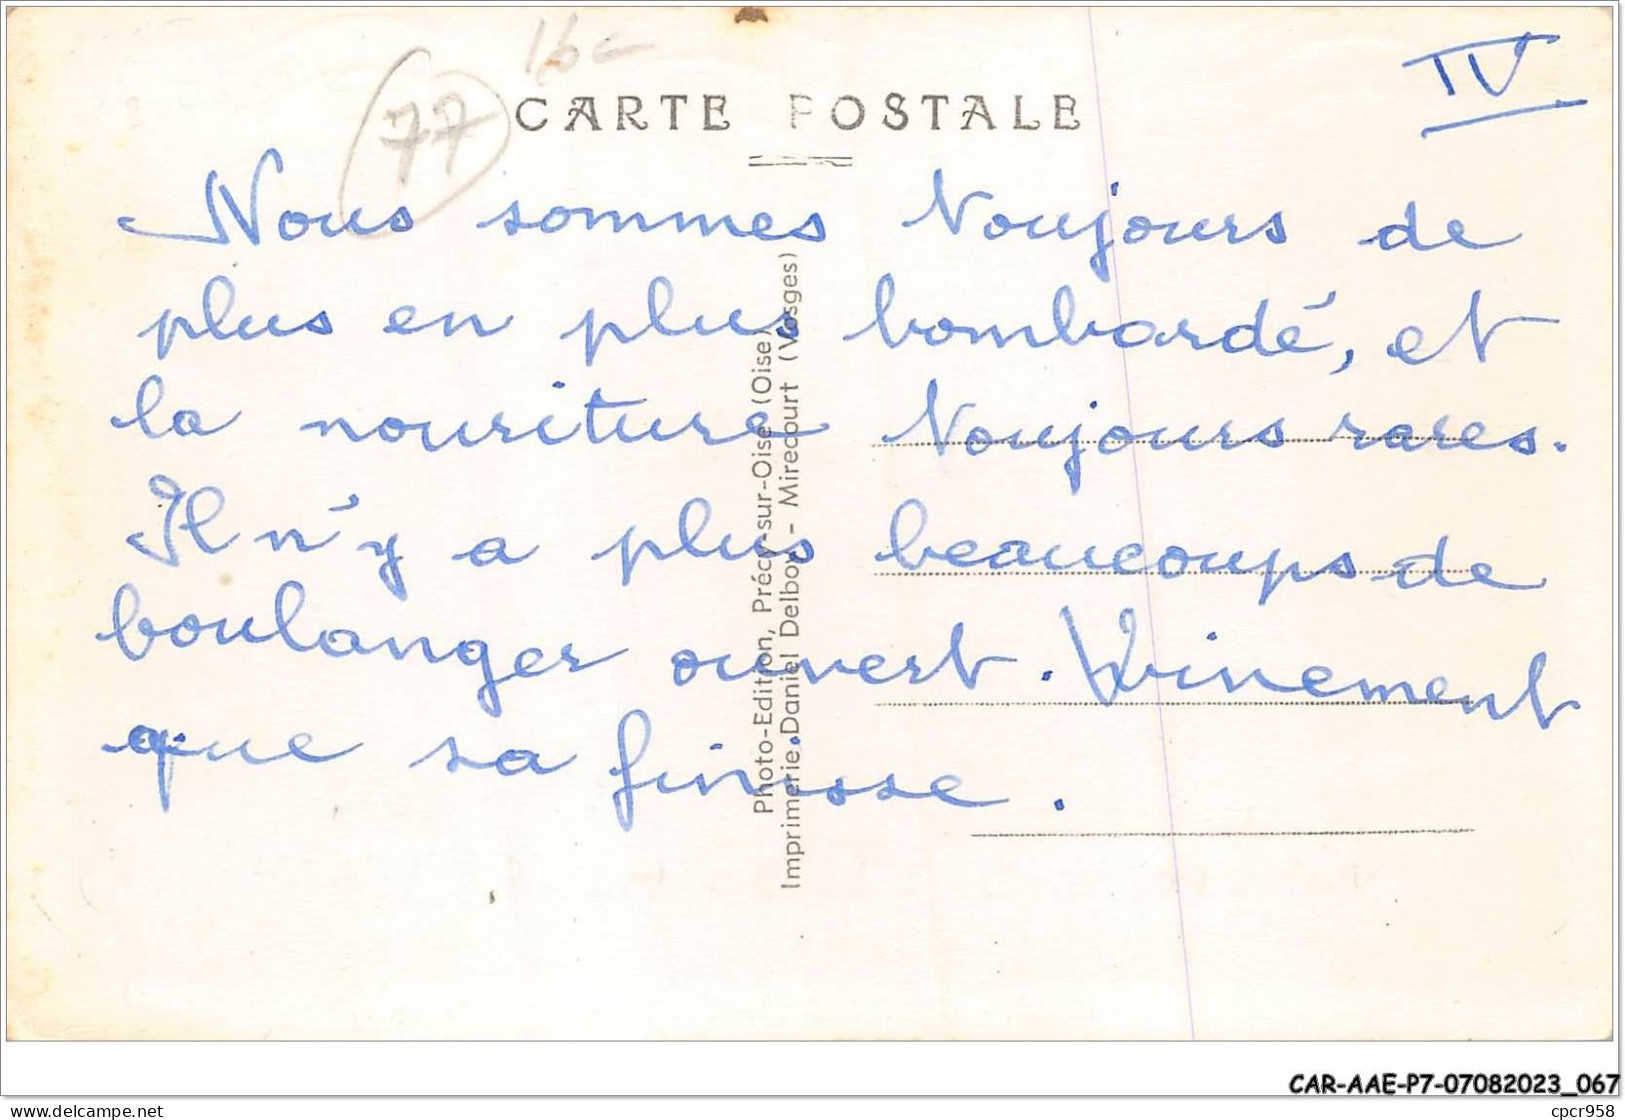 16-
77
CARTE POSTALE
IV
Nous sommes toujours de
plus en plus bombardé, et
la nouriture toujours rares.
Il n'y a plus beaucoups de
boulanger ouvert. Vivinement
que sa finisse.
Photo-Edition, Précy-sur-Oise (Oise)
Imprimerie Daniel Delboy - Mirecourt (Vosges)
CAR-AAE-P7-07082023_067
www.delcampe.net
cpcr958